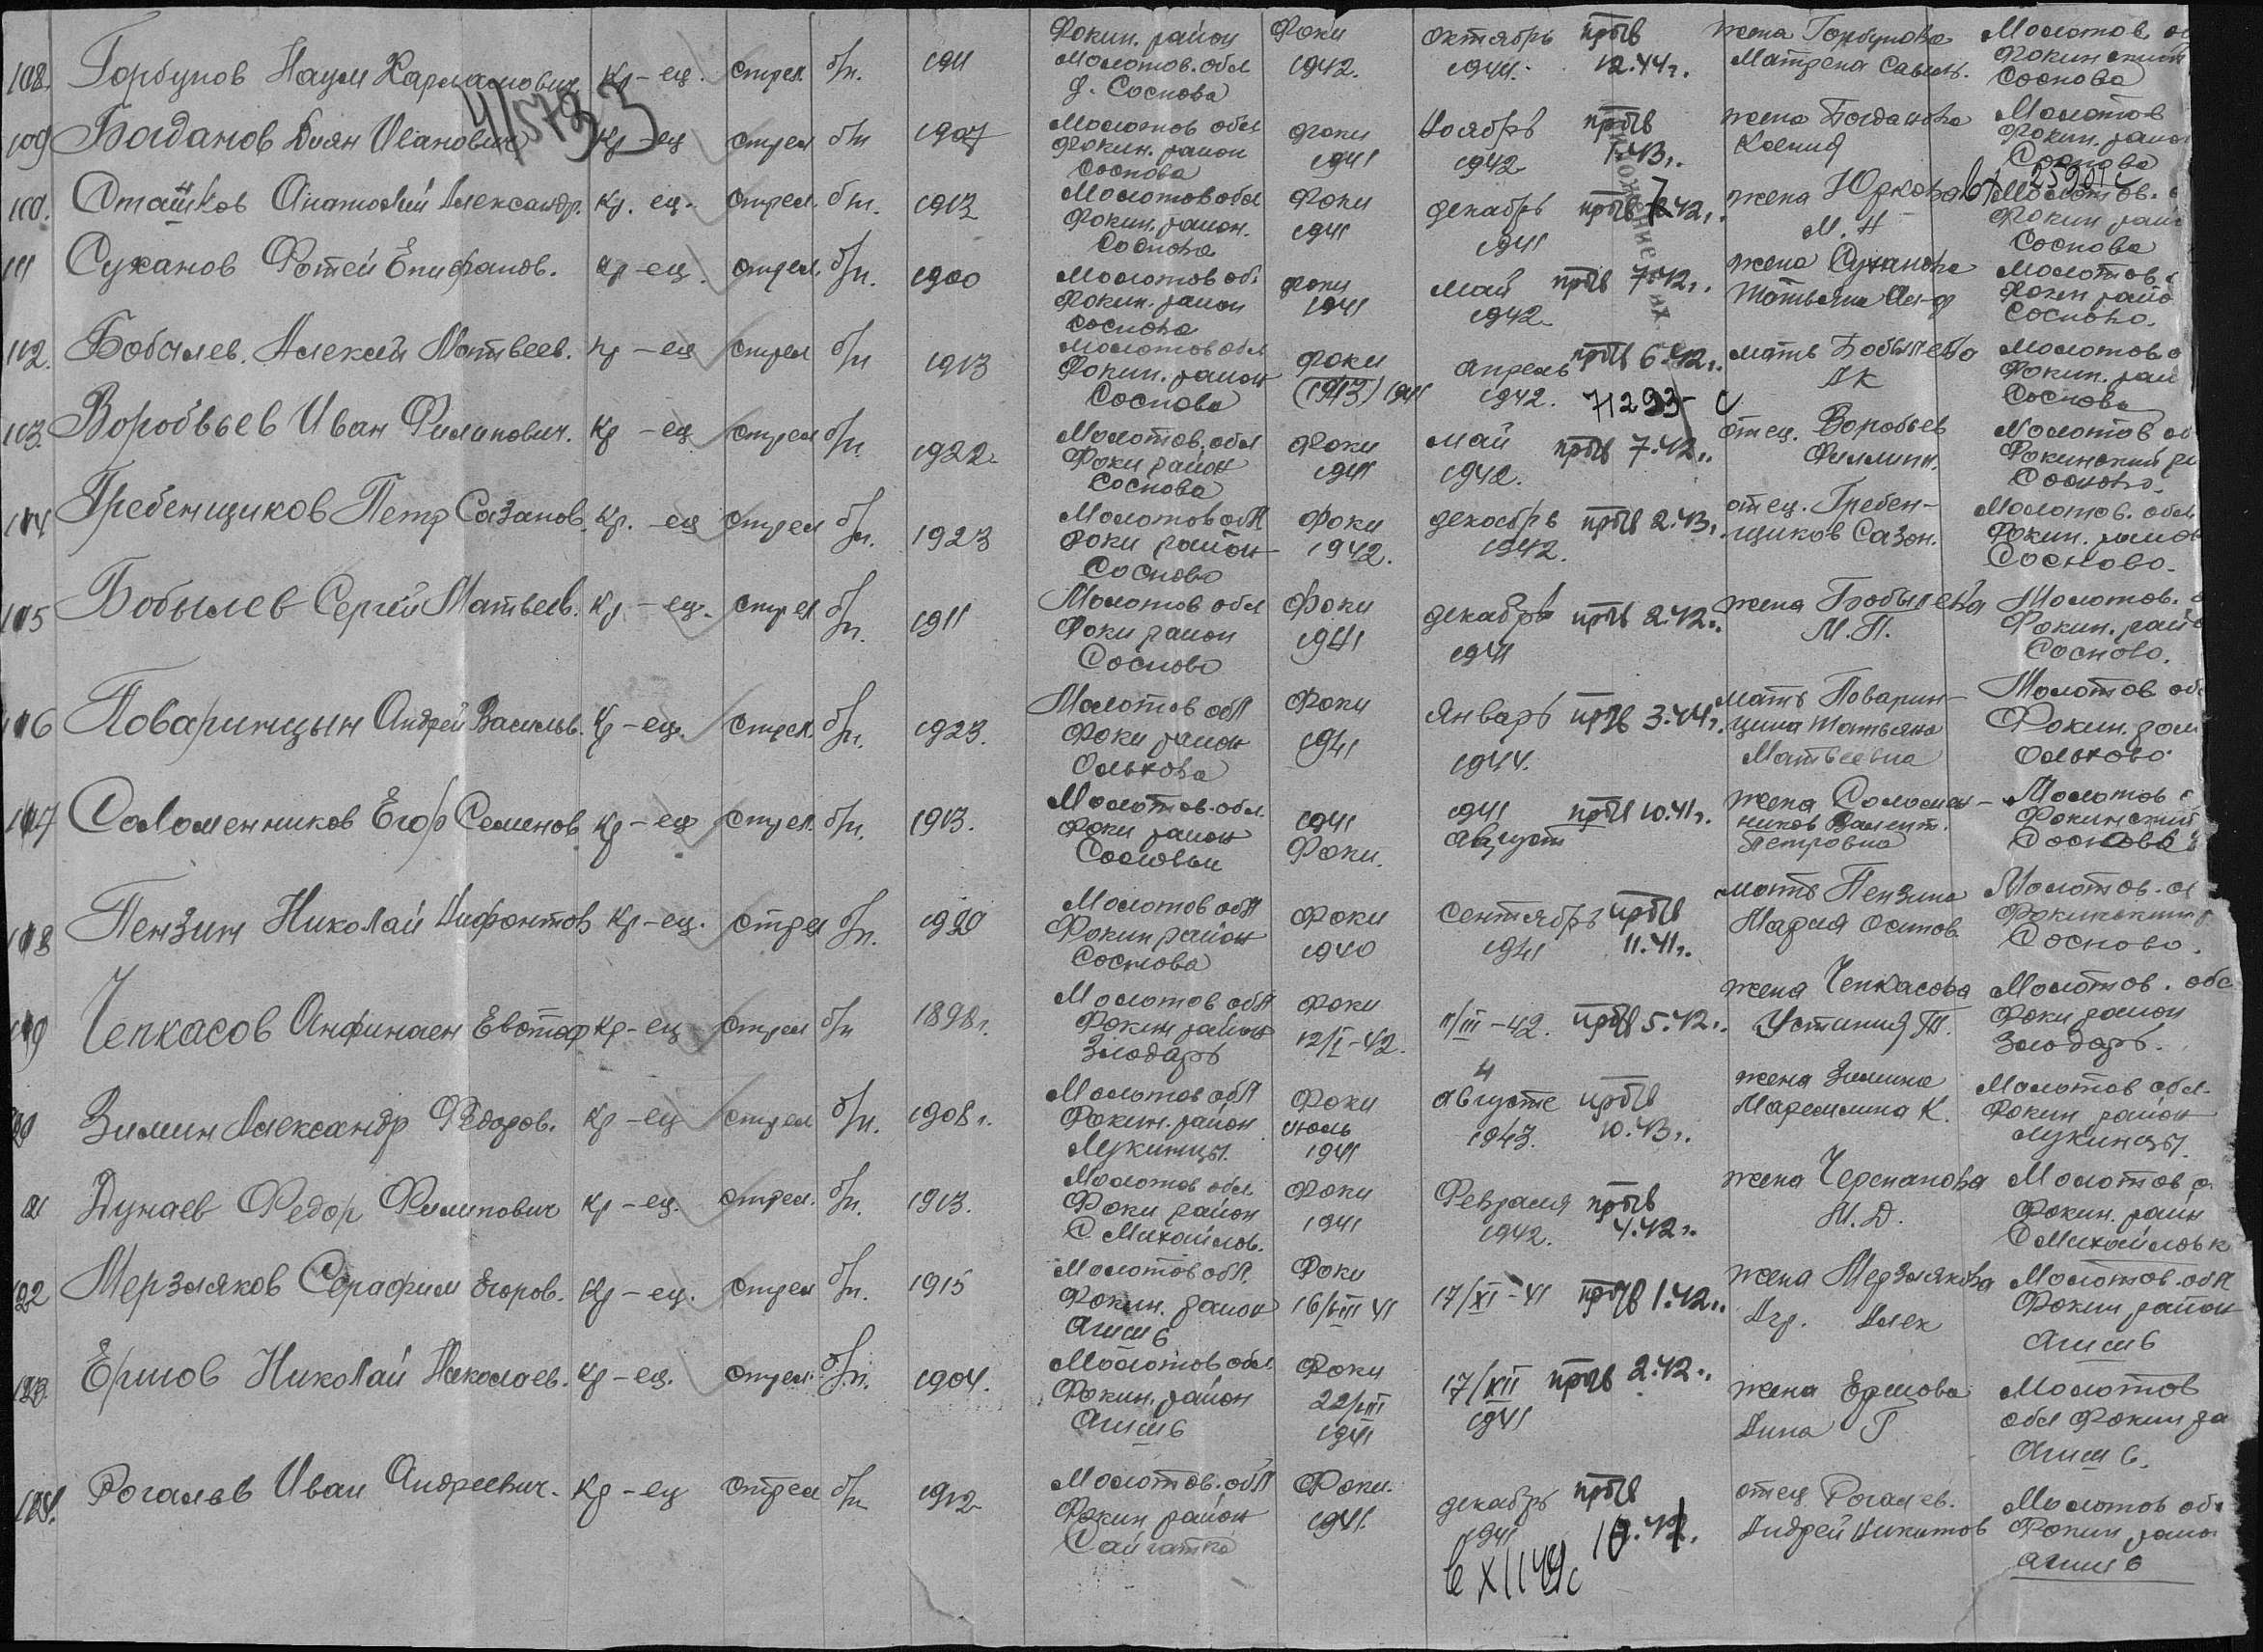 108. Горбунов Наум Хармамович Кр-ец. стрел. б/п. 1911 Фокин. район Молотов. обл д. Соснова Фоки 1942. октябрь 1944. пр.б/в 12.44г. жена Горбунова Матрена Савель. Молотов. о Фокинский Соснова
4/5793
109 Богданов Иванович Кр-ец стрел б/п 1907 Молотов обл Фокин. район Соснова Фоки 1941 Ноябрь 1942 пр.б/в 1.43г. жена Богданова Ксения Молотов Фокин. район Соснова
110. Сташков Анатолий Александр. Кр. ец. стрел. б/п. 1913 Молотов обл Фокин. район. Соснова Фоки 1941 декабрь 1941 пр.б/в 42г. жена Юркова М. Н Молотов. Фокин. рай Соснова
111 Суханов Фотей Епифанов. Кр-ец. стрел. б/п. 1900 Молотов об. Фокин. район Соснова Фоки 1941 май 1942 пр.б/в 7.42г. жена Суханова Татьяна Молотов. Фокин райо Сосново.
112. Бобылев. Алексей Матвеев. Кр-ец стрел б/п 1913 Молотов обл Фокин. район Соснова Фоки (1913) 1941 апрель 1942. пр.б/в 6.42г. мать Бобылева АК Молотов. о Фокин. рай Соснова
71293 с
113. Воробьев Иван Филипович. Кр-ец стрел б/п 1922 Молотов. обл Фоки район Соснова Фоки 1941 май 1942. пр.б/в 7.42г. отец. Воробьев Филипп. Молотов об Фокинский ра Сосново.
114 Гребенщиков Петр Сазанов. Кр. -ец стрел б/п. 1923 Молотов обл Фоки район Сосново Фоки 1942. декабрь 1942. пр.б/в 2.43г. отец. Гребенщиков Сазон. Молотов. обл Фокин. район Сосново.
115 Бобылев Сергей Матвеев. Кр-ец. стрел б/п. 1911 Молотов обл Фоки район Сосново Фоки 1941 декабрь 1941 пр.б/в 2.42г. жена Бобылева М.П. Молотов. о Фокин. райо Сосново.
116 Поваринцын Андрей Васильев. Кр-ец. стрел. б/п. 1923. Молотов обл Фоки район Ольхова Фоки 1941 январь 1944. пр.б/в 3.44г. мать Поваринцина Татьяна Матвеевна Молотов обл Фокин. рай Ольхово
117 Соломенников Егор Семенов Кр-ец стрел. б/п. 1913. Молотов. обл. Фоки район Сосновы 1941 Фоки. 1941 август пр.б/в 10.41г. жена Соломенников Валент. Петровна Молотов Фокинский Соснова
118 Пензин Николай Анфонтов Кр-ец. стрел б/п. Молотов обл Фокин район Соснова Фоки 1940 Сентябрь 1941 пр.б/в 11.41г. мать Пензина Мария Осипов. Молотов. о Фокинский Сосново.
119 Чепкасов Анфинаен Евстар Кр-ец стрел б/п 1898г. Молотов обл Фокин район Злодарь Фоки 12/I-42. 11/III-42. пр.б/в 5.42г. жена Чепкасова Устиния Т. Молотов. обл Фоки район Злодарь.
120 Зимин Александр Федоров. Кр-ец стрел б/п. 1908г. Молотов обл Фокин. район Лукинцы. Фоки июль 1941 4 августе 1943. пр.б/в 10.43г. жена Зимина К. Молотов обл. Фокин район Лукинцы.
121 Дунаев Федор Филипович Кр-ец. стрел. б/п. 1913. Молотов обл. Фоки район С. Михайлов. Фоки 1941 Февраля 1942. пр.б/в 4.42г. жена Черепанова Н.Д. Молотов о Фокин. район С Михайловк
122 Мерзляков Серафим Егоров. Кр-ец. стрел б/п. 1915 Молотов обл. Фокин. район Агиш6 Фоки 16/VIII 41 17/XI-41 пр.б/в 1.42г. жена Мерзлякова Агр. Алек Молотов. обл Фокин район Агиш6
123 Ершов Николай Николаев. Кр-ец. стрел. б/п. 1904. Молотов обл Фокин. район Агиш6 Фоки 22/VIII 1941 17/XII 1941 пр.б/в 2.42г. жена Ершова Анна Г Молотов обл Фокин ра Агиш6.
124. Рогалев Иван Андреевич. Кр-ец стрел б/п 1912 Молотов. обл Фокин район Сайгатка Фоки. 1941. декабрь 1941 пр.б/в отец Рогалев. Андрей Никитов Молотов об Фокин райо Агиш6